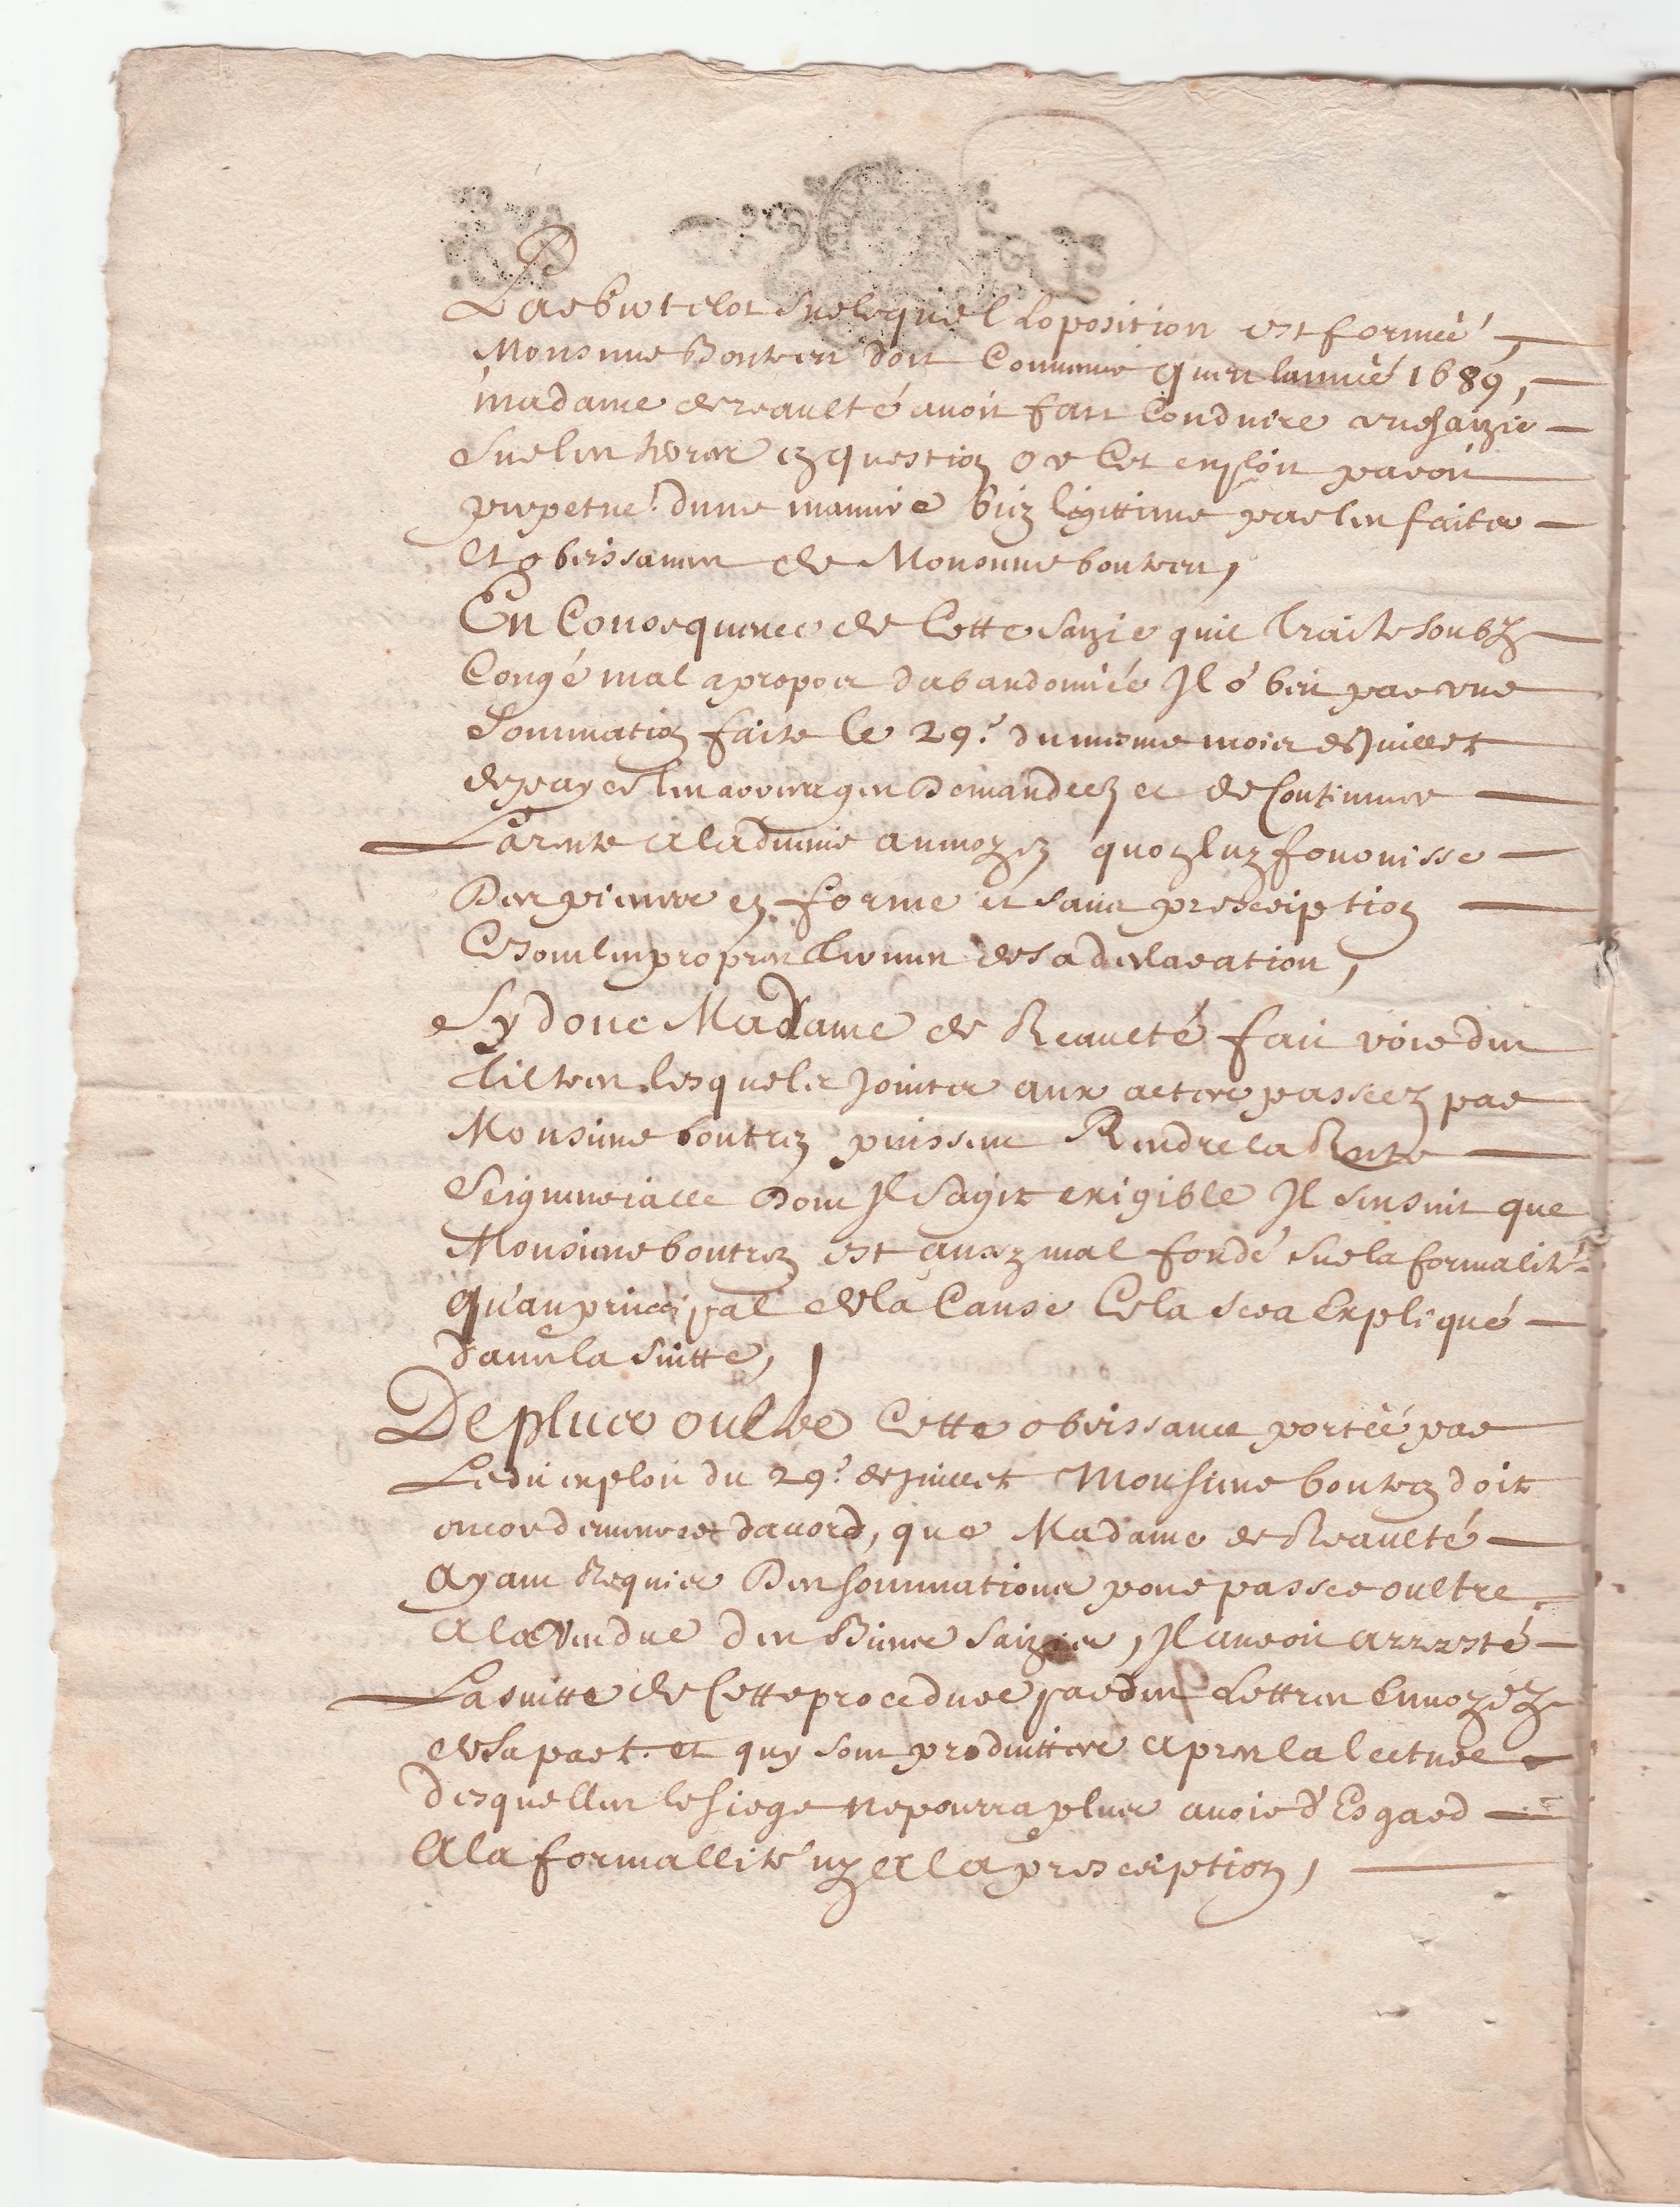 sur lequel Loposition est formée
Monsieur Bontens doit Convenir quen lannée 1689,
madame de reaulté avoit fait Conduire une saizie
sur les heres en question or Cet exploit paroit
perpetué dune maniere bien legittime par les faites
et obeissances de Monsieur boutren,
En Consequence de Cette saizie quil traite soubz
Congé mal apropos dabandonnée Il obeit par une
sommation faite le 29e du mesme mois de Juillet
de payer les arrerages Demandeez et de Continuer
La rente a ladvenir au moyen quon luy fournisse
Des pieces en forme et sans prescription
Ce sont les propres termes de sa declaration,
Sy donc Madame de Reaulté fait voir des
tiltres lesquels Jointes aux actes passeez par
Monsieur boutren puissent Rendre la Rente
Seigneurialle Dont Il sagit exigible Il sensuit que
Monsieur boutren est aussy mal fondé sur la formalité
qu'au principal de la Cause Cela sera Expliqué
dans la suitte,
De plus oultre Cette obeissance portée par
Ledit exploit du 29e de juillet Monsieur boutren doit
encor demeurer daccord, que Madame de Reaulté
ayant Requis Des sommations pour passer oultre
a la Vendue des Biens saizies, Il auroit arresté
La suitte de Cette procedure par des Lettres Envoyéez
de sa part et quy sont produittes apres la lecture
desquelles le siege ne pourra plus avoir d'Esgard
A la formallité ny a la prescription,